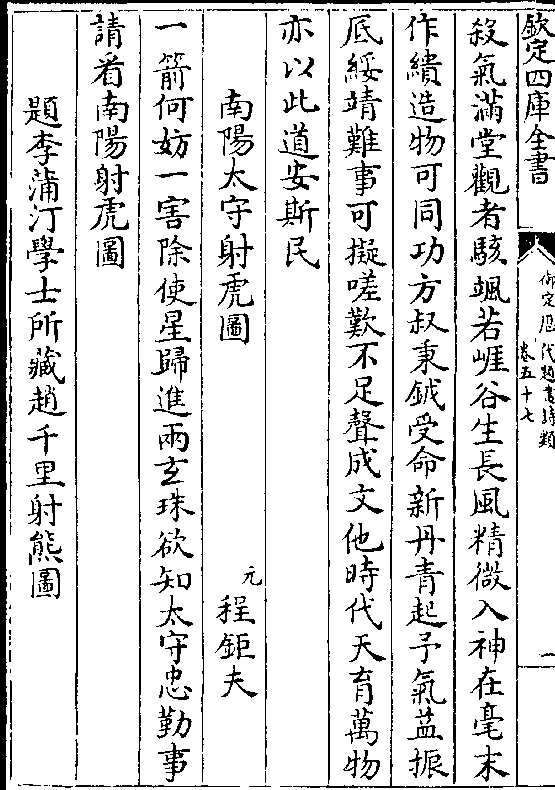 欽定四庫全書
御定歷代題畫詩類
卷五十七
一
殺氣滿堂觀者駭颯若崖谷生長風精微入神在毫末
作繢造物可同功方叔秉鉞受命新丹青起予氣益振
底綏靖難事可擬嗟歎不足聲成文他時代天育萬物
亦以此道安斯民
南陽太守射虎圖
元 程鉅夫
一箭何妨一害除使星歸進兩玄珠欲知太守忠勤事
請看南陽射虎圖
題李蒲汀學士所藏趙千里射熊圖